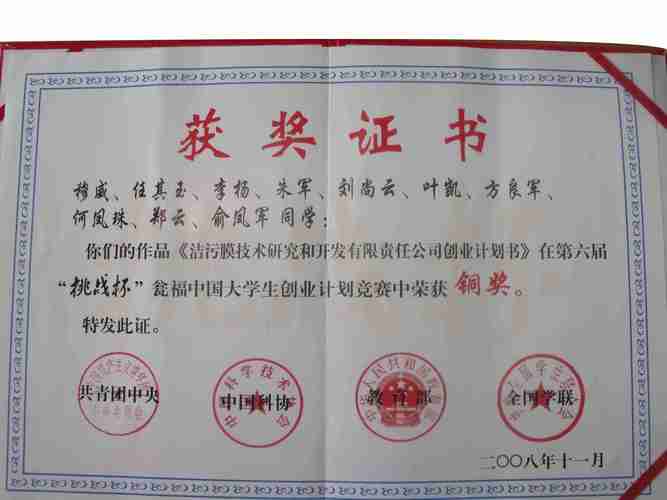 获奖证书
穆威、任其玉、李杨、朱军、刘尚云、叶凯、方良军、
何凤珠、郑云、俞凤军同学：
你们的作品《洁污膜技术研究和开发有限责任公司创业计划书》在第六届
“挑战杯”瓮福中国大学生创业计划竞赛中荣获 铜奖。
特发此证。
共青团中央 中国科协 教育部 全国学联
二〇〇八年十一月